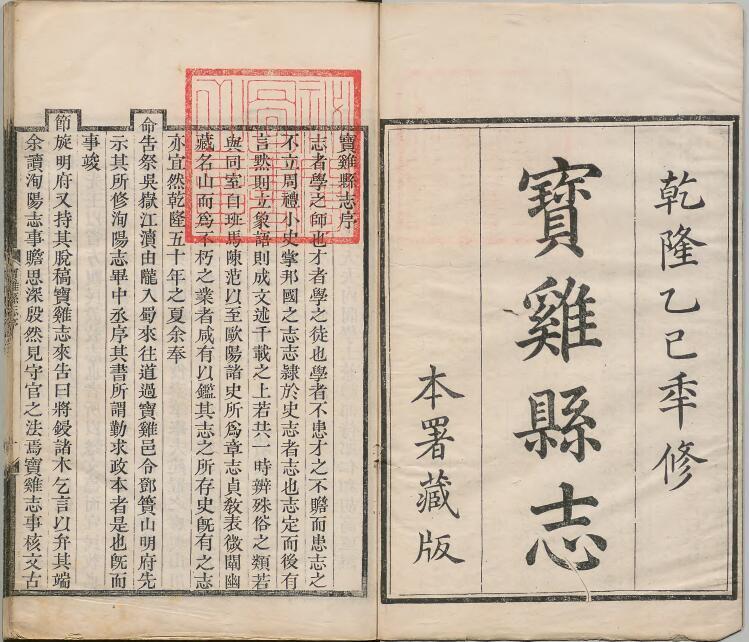 乾隆乙巳秊修
寶雞縣志
本署藏版
寶雞縣志序
志者學之師也才者學之徒也學者不患才之不贍而患志之
不立周禮小史掌邦國之志志隸於史者志也志定而後有
言然則立象語則成文述千載之上若共一時辨殊俗之類若
與同室自班馬陳范以至歐陽諸史所爲章志貞敎表微闡幽
藏名山而爲不朽之業者咸有以鑑其志之所存史旣有之志
亦宜然乾隆五十年之夏余奉
命告祭吳嶽江瀆由隴入蜀來往道過寶雞邑令鄧簣山明府先
示其所修洵陽志畢中丞序其書所謂勤求政本者是也旣而
事竣
節旋明府又持其脫稿寶雞志來告曰將鋟諸木乞言以弁其端
余讀洵陽志事贍思深殷然見守官之法焉寶雞志事核文古